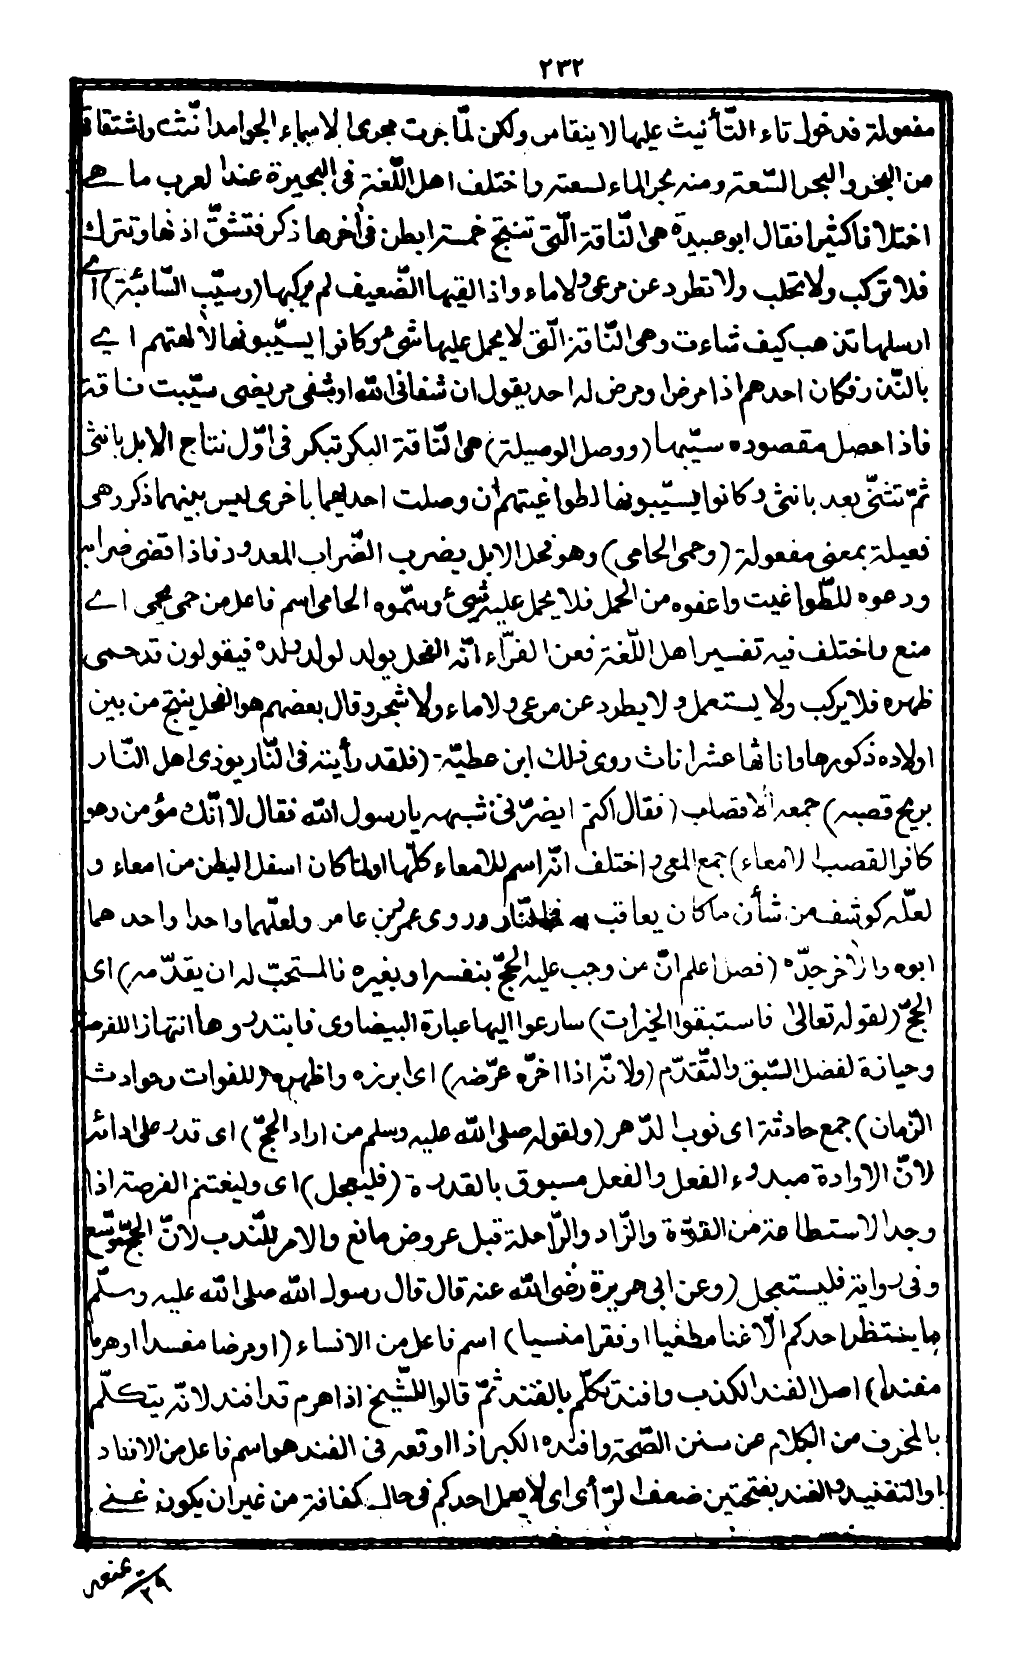 ٢٣٢
مفعولة فدخول تاء التّأنيث عليها لا ينقاس ولكن لمّا جرت مجرى الاسماء الجوامد انّثت واشتقاقه
من البحر والبحر السّعة ومنه بحر الماء لسعته واختلف اهل اللّغة فى البحيرة عند العرب ما هى
اختلافا كثيرا فقال ابو عبيدة هى النّاقة الّتى تنتج خمسة ابطن فى آخرها ذكر فتشقّ اذنها وتترك
فلا تركب ولا تحلب ولا تطرد عن مرعى ولا ماء واذا لقيها الضّعيف لم يركبها (وسيّب السّائبة) اى
ارسلها تذهب كيف شاءت وهى النّاقة الّتى لا يحمل عليها شئ وكانوا يسيّبونها لآلهتهم اى
بالنّذر فكان احدهم اذا مرض او مرض له احد يقول ان شفانى الله او شفى مريضى سيّبت ناقة
فاذا حصل مقصوده سيّبها (ووصل الوصيلة) هى النّاقة البكر تبكر فى اوّل نتاج الابل بانثى
ثمّ تثنّى بعد بانثى وكانوا يسيّبونها لطواغيتهم ان وصلت احديهما باخرى ليس بينهما ذكر وهى
فعيلة بمعنى مفعولة (وحمى الحامى) وهو فحل الابل يضرب الضّراب المعدود فاذا قضى ضرابه
ودعوه للطّواغيت واعفوه من الحمل فلا يحمل عليه شئ وسمّوه الحامى اسم فاعل من حمى يحمى اى
منع واختلف فيه تفسير اهل اللّغة فعن الفرّاء انّه الفحل يولد لولد ولده فيقولون قد حمى
ظهره فلا يركب ولا يستعمل ولا يطرد عن مرعى ولا ماء ولا شجر وقال بعضهم هو الفحل ينتج من بين
اولاده ذكورها واناثها عشر اناث روى ذلك ابن عطيّة (فلقد رأيته فى النّار يوذى اهل النّار
بريح قصبه) جمعه الاقصاب (فقال اكثم ايضرّنى شبهه يا رسول الله فقال لا انّك مؤمن وهو
كافر القصب الامعاء) جمع المعى واختلف انّه اسم للامعاء كلّها او لما كان اسفل البطن من امعاء و
لعلّه كوشف من شأن ما كان يعاقب به فى النّار وروى عمرو بن عامر ولعلّهما واحد احدهما
ابوه والآخر جدّه (فصل اعلم انّ من وجب عليه الحجّ بنفسه او بغيره فالمستحبّ له ان يقدّمه) اى
الحجّ (لقوله تعالى فاستبقوا الخيرات) سارعوا اليها عبارة البيضاوى فابتدروها انتهازا للفرصة
وحيازة لفضل السّبق والتّقدّم (ولانّه اذا اخّره عرّضه) اى ابرزه واظهره (للفوات وحوادث
الزّمان) جمع حادثة اى نوب الدّهر (ولقوله صلى الله عليه وسلم من اراد الحجّ) اى قدر على ادائه
لانّ الارادة مبدء الفعل والفعل مسبوق بالقدرة (فليعجل) اى وليغتنم الفرصة اذا
وجد الاستطاعة من القوّة والزّاد والرّاحلة قبل عروض مانع والامر للنّدب لانّ الحجّ موسّع
وفى رواية فليستعجل (وعن ابى هريرة رضى الله عنه قال قال رسول الله صلى الله عليه وسلّم
ما ينتظر احدكم الّا غنا مطغيا او فقرا منسيا) اسم فاعل من الانساء (او مرضا مفسدا او هرما
مفندا) اصل الفند الكذب وافند تكلّم بالفند ثمّ قالوا للشّيخ اذا هرم قد افند لانّه يتكلّم
بالمخرف من الكلام عن سنن الصّحّة وافنده الكبر اذا اوقعه فى الفند هو اسم فاعل من الافناد
او التفنيد والفند بفتحتين ضعف الرّأى اى لا يعمل احدكم فى حال كفافة من غير ان يكون غنى